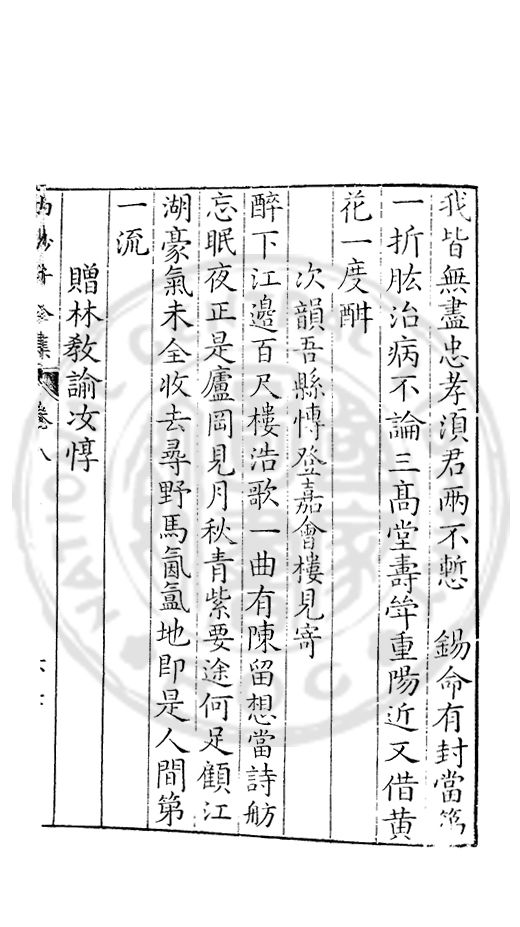 我皆無盡忠孝須君兩不慙　錫命有封當第
一折肱治病不論三高堂壽斝重陽近又借黄
花一度酣
次韻吾縣愽登嘉會樓見寄
醉下江邉百尺樓浩歌一曲有陳留想當詩舫
忘眠夜正是廬岡見月秋青紫要途何足顧江
湖豪氣未全收去尋野馬氤氲地即是人間第
一流
贈林敎諭汝惇
卷八